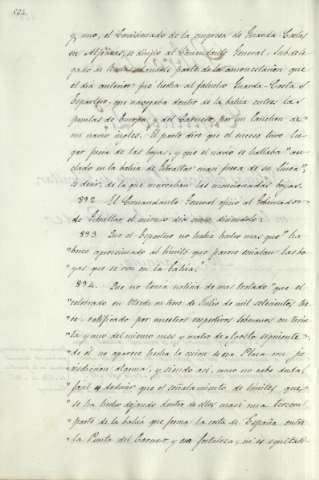 y, uno, el Comisionado de la empresa de Guarda-Costas
en Algeciras, se dirijió al Comandante General
dando parte de la amonestacion que
el dia anterior fué hecha al falucho Guarda-Costa el
Esportero, que navegaba dentro de la bahía entre las
puntas de Europa y del Carnero, por un lanchon de
un navio inglés. El parte dice que el suceso tuvo lu-
gar fuera de las boyas, y que el navio se hallaba "an-
clado en la bahía de Gibraltar muy fuera de su línea",
es decir, de la que marcaban las mencionadas boyas.
892. El Comandante General ofició al Gobernador
de Gibraltar el mismo dia diciendole:
893. Que el Esportero no había hecho mas que "ha-
berse aproximado al límite que parece señalan las bo-
yas que se ven en la bahía."
894. Que no tenia noticia de mas tratado "que el
celebrado en Utrech en trece de Julio de mil setecientos tre-
ce, ratificado por nuestros respectivos Soberanos en trein-
ta y uno del mismo mes y cuatro de Agosto siguiente
de él no aparece hecha la cesion de esa Plaza con ju-
risdiccion alguna, y siendo así, creo no cabe du-
da deducir que el señalamiento de límites que
se ha hecho dejando dentro de ellos casi una tercera
parte de la bahía que forma la costa de España entre
la Punta del Carnero y esa fortaleza, no es equitati-